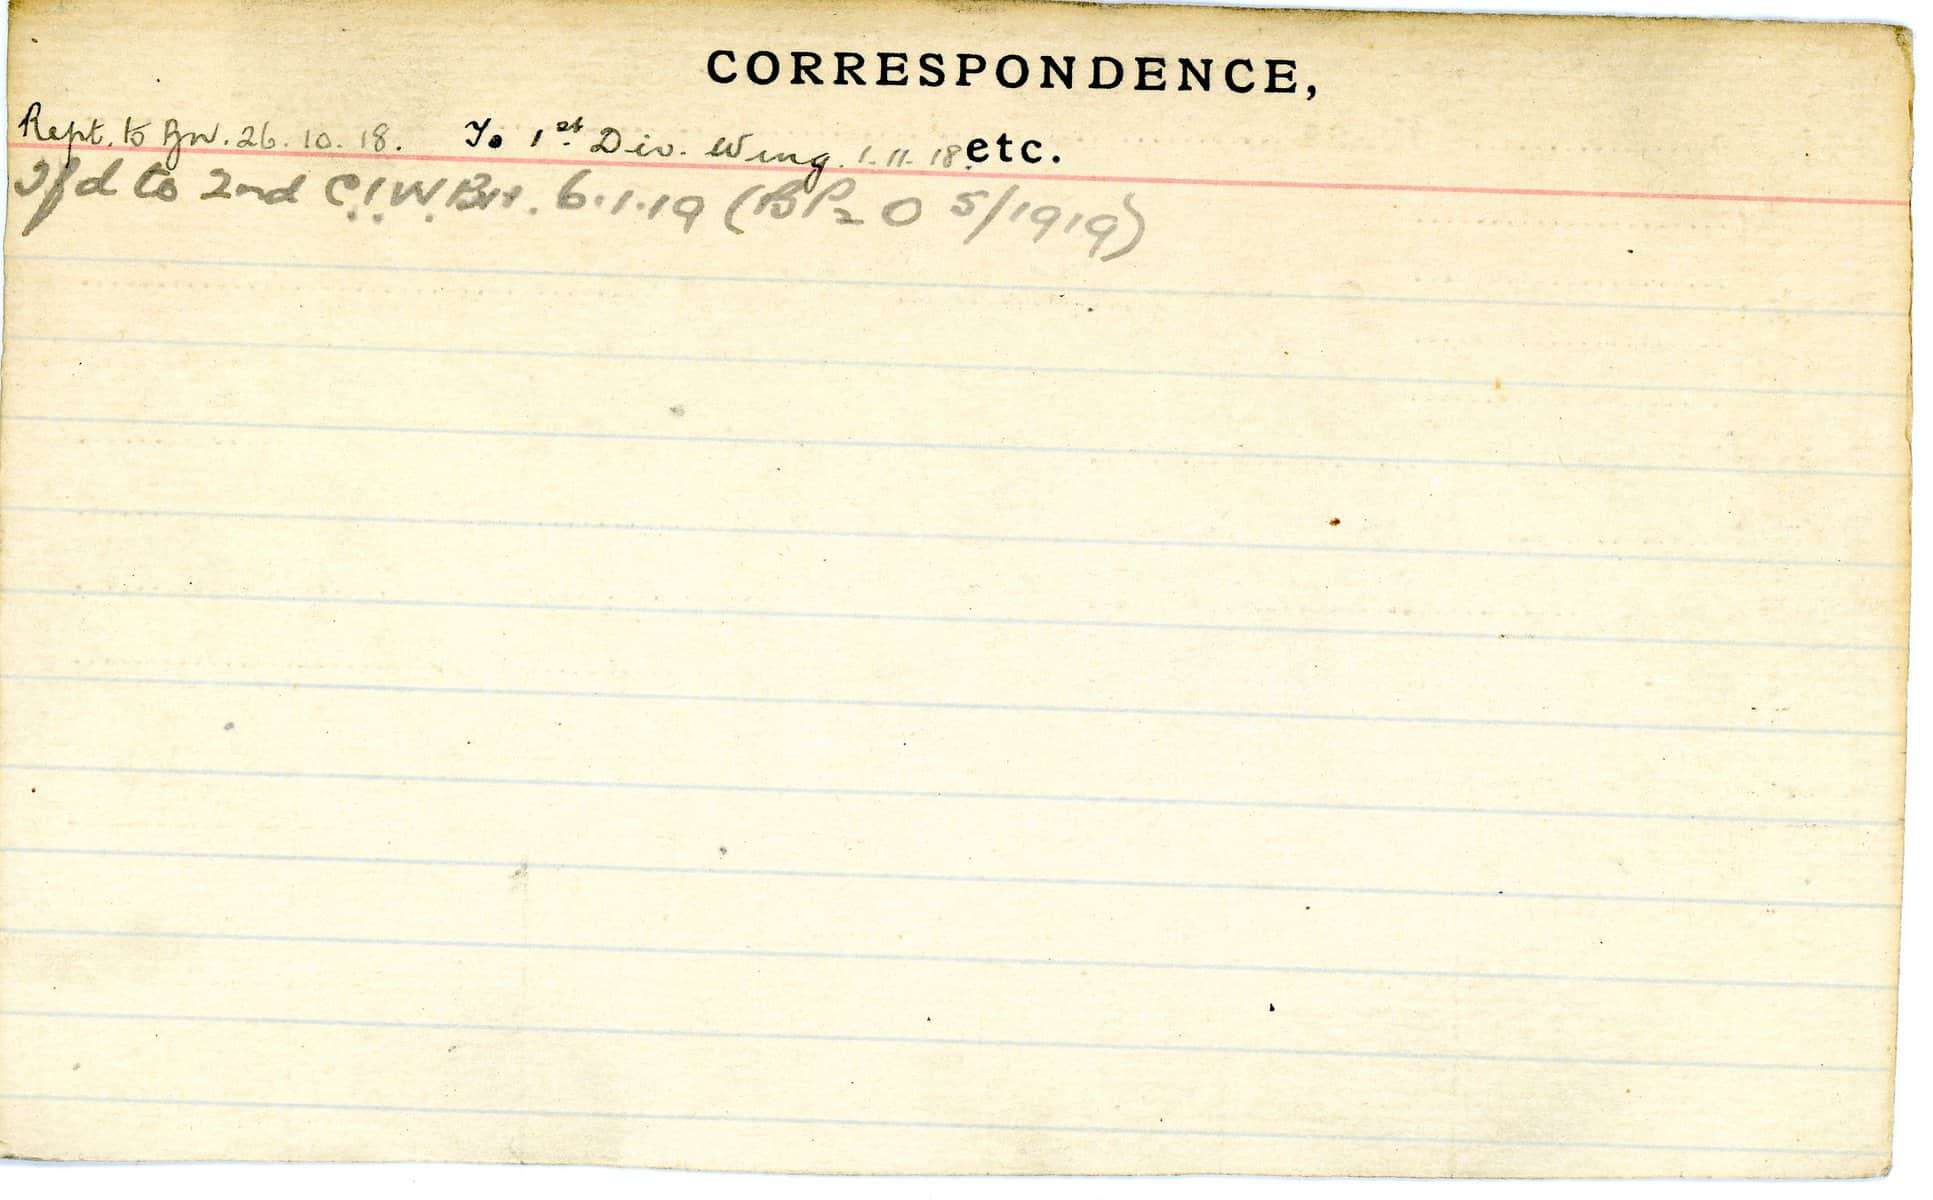 CORRESPONDENCE,
Rept. to Gov. 26.10.18. To 1st Div. Wing. 1.11.18. etc.
T/d to 2nd C.I.W.Bn. 6.1.19 (BP2 O 5/1919)